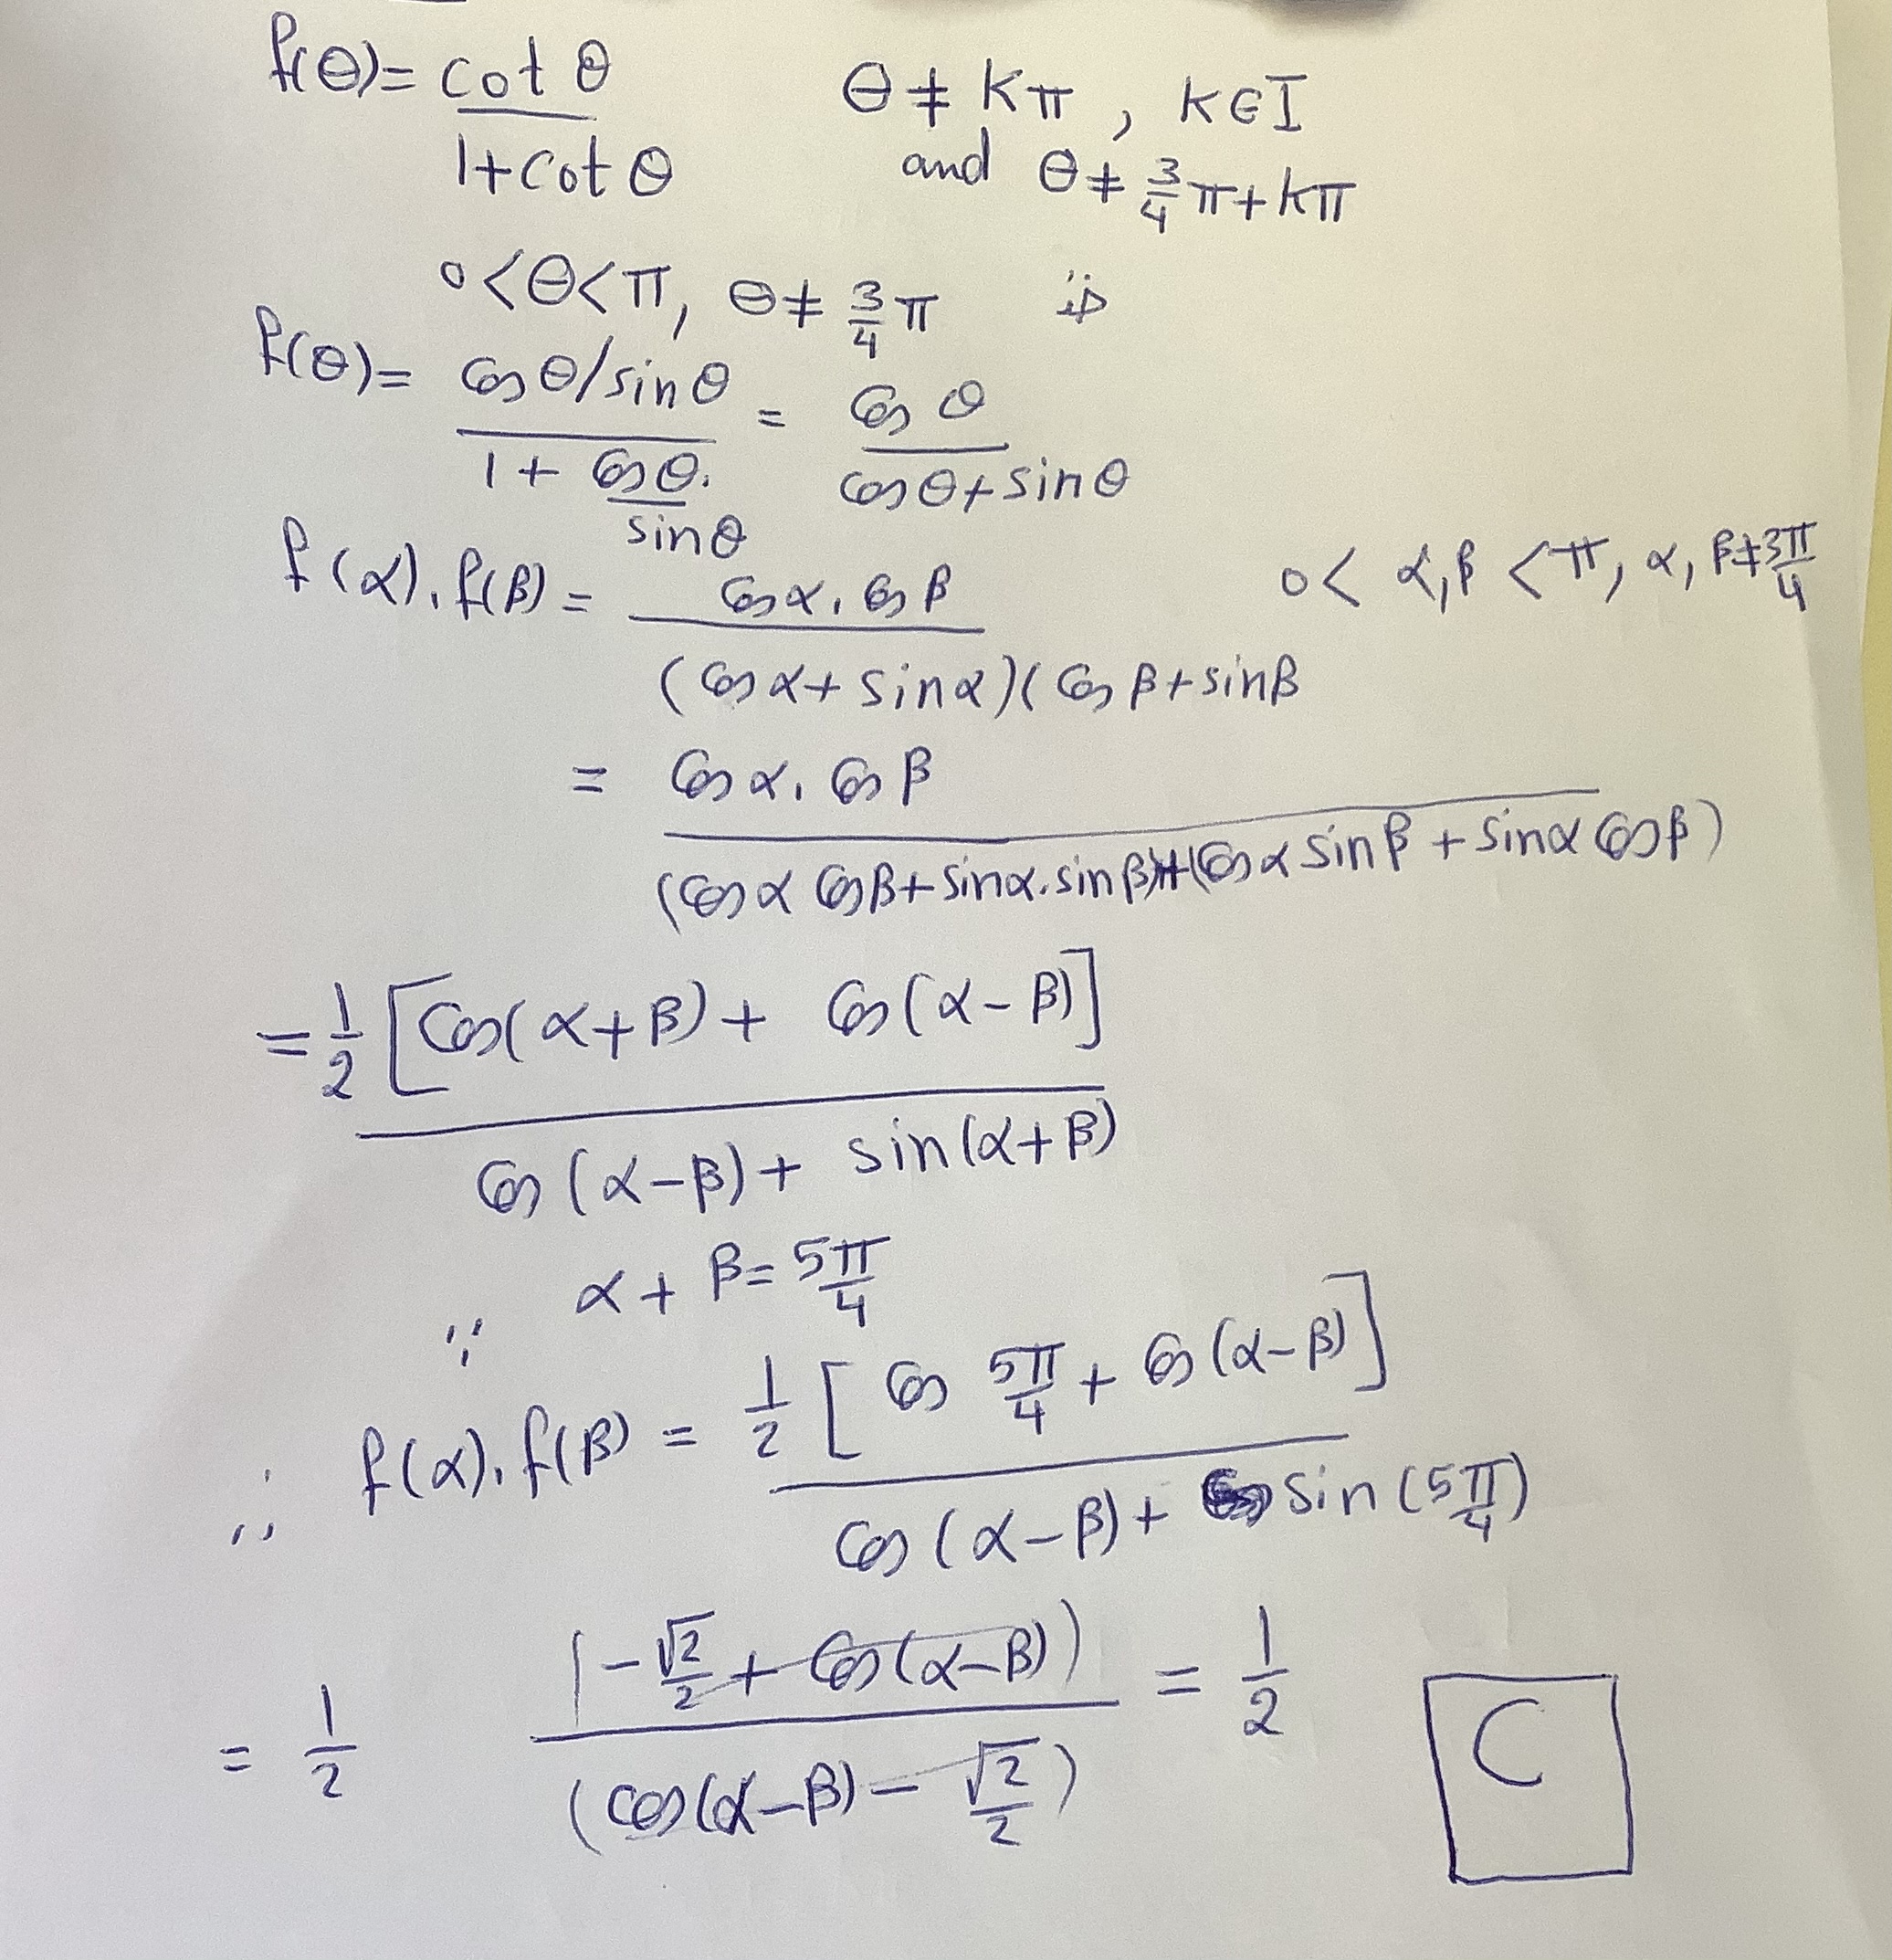 f(θ)= cot θ / 1+cot θ    θ ≠ kπ , k∈I
and θ ≠ 3/4 π + kπ
0<θ<π, θ ≠ 3/4 π
f(θ)= cos θ/sin θ / 1 + cos θ/sin θ = cos θ / cos θ + sin θ
f(α).f(β) = cos α. cos β / (cos α + sin α)(cos β + sin β    0< α,β <π, α, β≠3π/4
= cos α. cos β / (cos α cos β + sin α. sin β)+(cos α sin β + sin α cos β)
= 1/2 [cos(α+β) + cos(α-β)] / cos(α-β) + sin(α+β)
∵ α + β = 5π/4
∴ f(α). f(β) = 1/2 [cos 5π/4 + cos(α-β)] / cos(α-β) + sin(5π/4)
= 1/2 (-√2/2 + cos(α-β)) / (cos(α-β) - √2/2) = 1/2    C